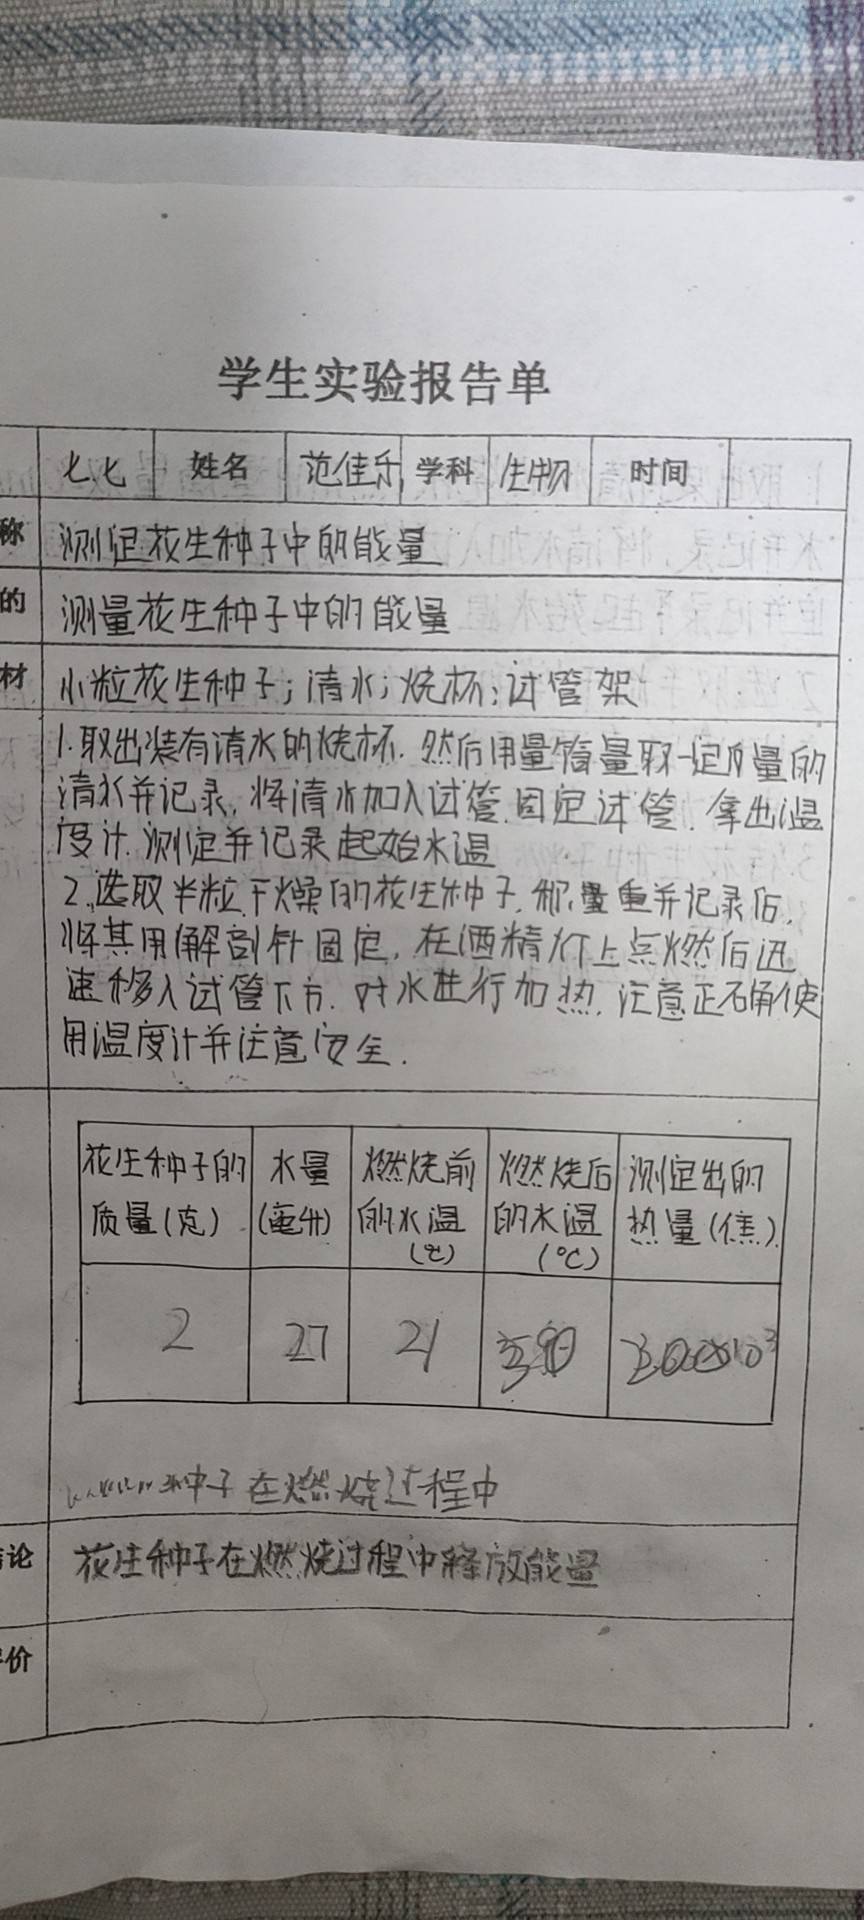 学生实验报告单
七.七 姓名 范佳乐 学科 生物 时间
称 测定花生种子中的能量
的 测量花生种子中的能量
材 小粒花生种子;清水;烧杯;试管架
1.取出装有清水的烧杯.然后用量筒量取一定量的
清水并记录,将清水加入试管.固定试管.拿出温
度计.测定并记录起始水温
2.选取半粒干燥的花生种子.称量重并记录后,
将其用解剖针固定,在酒精灯上点燃后迅
速移入试管下方.对水进行加热.注意正确使
用温度计并注意安全.
花生种子的质量(克) 水量(毫升) 燃烧前的水温(℃) 燃烧后的水温(℃) 测定出的热量(焦)
2 27 21
种子在燃烧过程中
论 花生种子在燃烧过程中释放能量
价